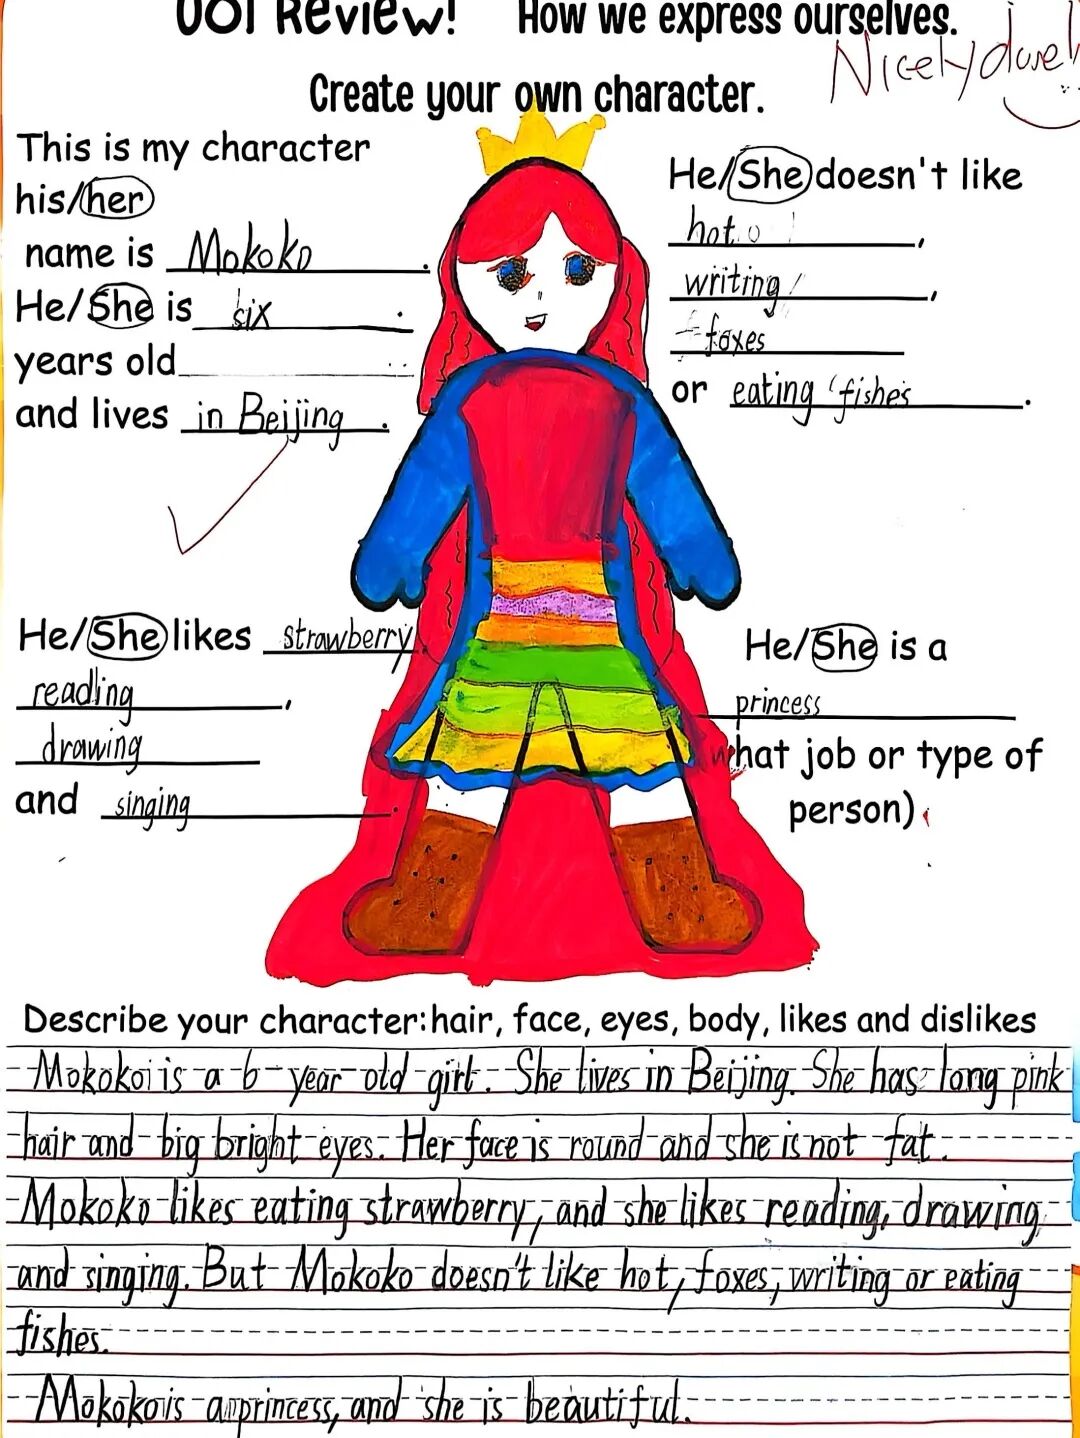 UOI Review! How we express ourselves.
Nicely done!
Create your own character.
This is my character
his/her
name is Mokoko.
He/She is six.
years old
and lives in Beijing.
He/She doesn't like
hot,
writing,
foxes
or eating fishes.
He/She likes strawberry
reading,
drawing
and singing.
He/She is a
princess
what job or type of
person).
Describe your character: hair, face, eyes, body, likes and dislikes
Mokoko is a 6-year-old girl. She lives in Beijing. She has long pink
hair and big bright eyes. Her face is round and she is not fat.
Mokoko likes eating strawberry, and she likes reading, drawing
and singing. But Mokoko doesn't like hot, foxes, writing or eating
fishes.
Mokoko is a princess, and she is beautiful.